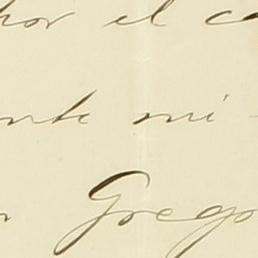 por el
nte mi
Grego